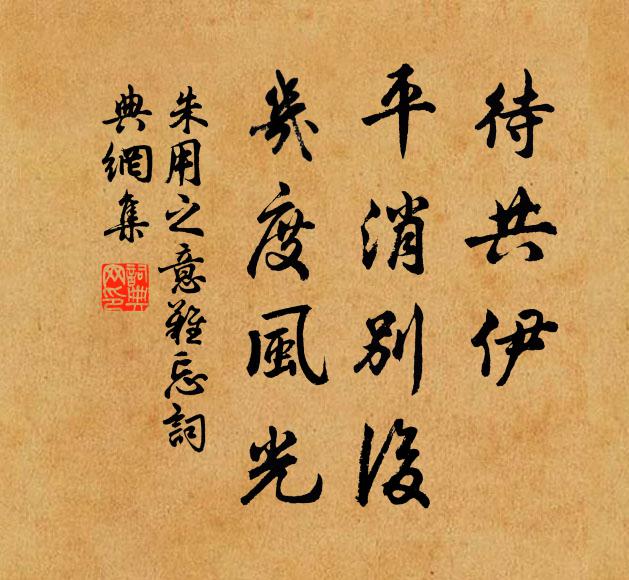 待共伊
平消别後
幾度風光
朱用之意難忘詞
典網集
詞典
网印